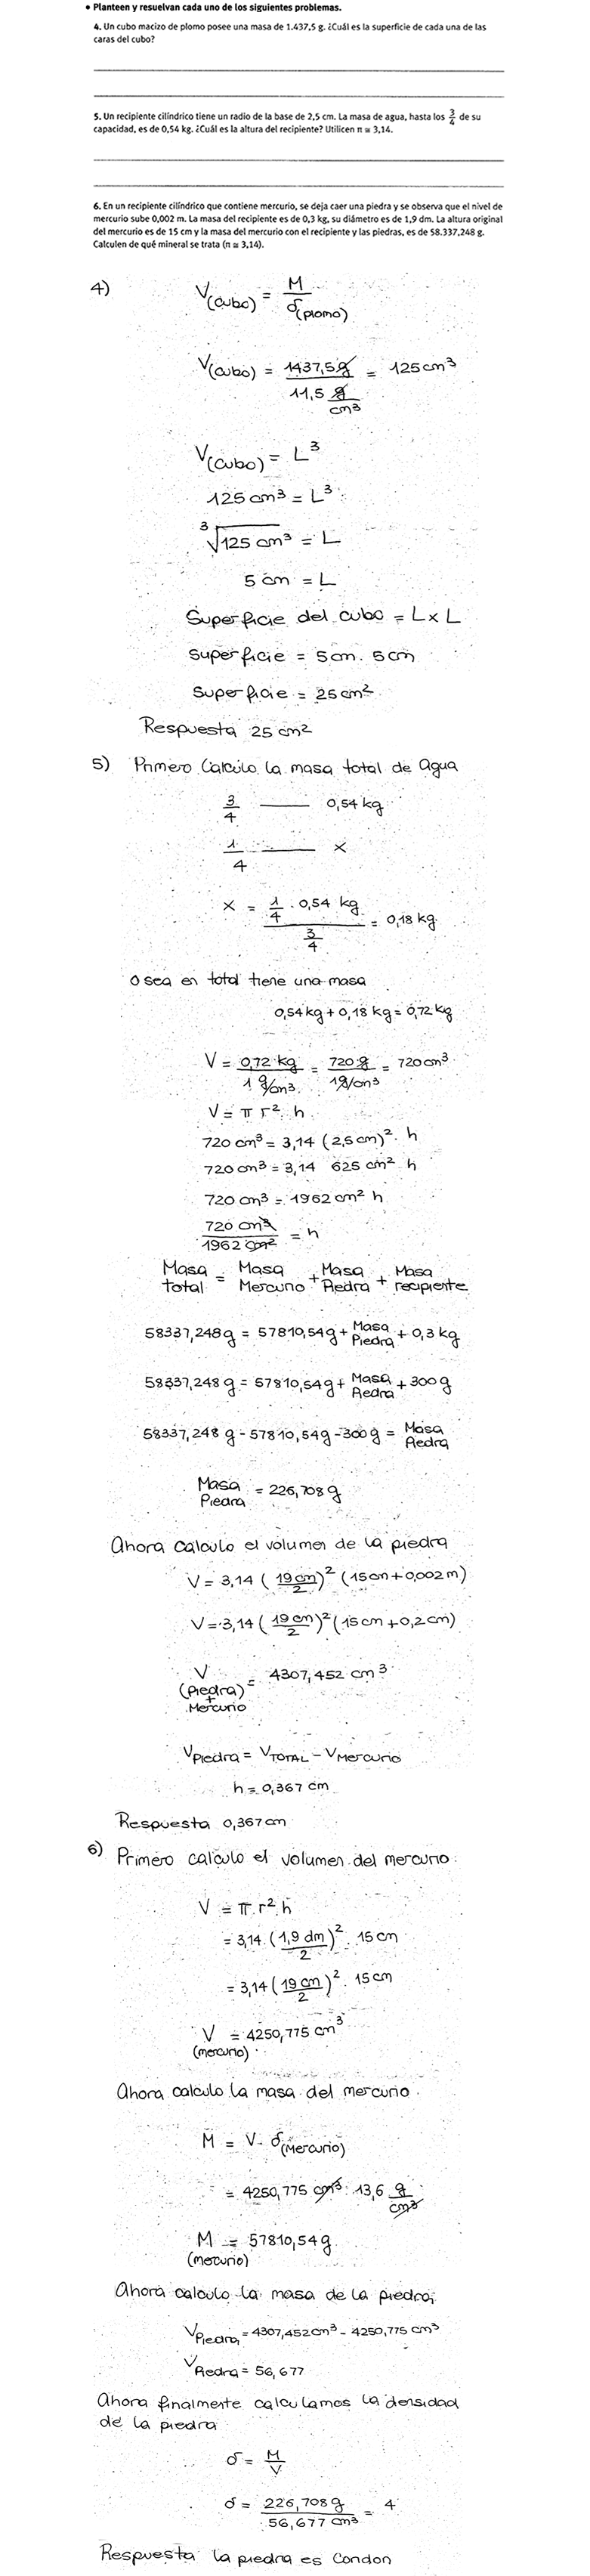 • Planteen y resuelvan cada uno de los siguientes problemas.
4. Un cubo macizo de plomo posee una masa de 1.437,5 g. ¿Cuál es la superficie de cada una de las
caras del cubo?
5. Un recipiente cilíndrico tiene un radio de la base de 2,5 cm. La masa de agua, hasta los 3/4 de su
capacidad, es de 0,54 kg. ¿Cuál es la altura del recipiente? Utilicen π ≅ 3,14.
6. En un recipiente cilíndrico que contiene mercurio, se deja caer una piedra y se observa que el nivel de
mercurio sube 0,002 m. La masa del recipiente es de 0,3 kg, su diámetro es de 1,9 dm. La altura original
del mercurio es de 15 cm y la masa del mercurio con el recipiente y las piedras, es de 58.337,248 g.
Calculen de qué mineral se trata (π ≅ 3,14).
4) V(cubo) = M / δ(plomo)
V(cubo) = 1437,5 g / 11,5 g/cm³ = 125 cm³
V(cubo) = L³
125 cm³ = L³
³√125 cm³ = L
5 cm = L
Superficie del cubo = L x L
superficie = 5cm . 5cm
superficie = 25 cm²
Respuesta 25 cm²
5) Primero Calculo la masa total de agua
3/4 —— 0,54 kg
1/4 —— x
x = 1/4 . 0,54 kg / 3/4 = 0,18 kg
O sea en total tiene una masa
0,54 kg + 0,18 kg = 0,72 kg
V = 0,72 kg / 1 g/cm³ = 720 g / 1 g/cm³ = 720 cm³
V = π r² . h
720 cm³ = 3,14 (2,5 cm)² . h
720 cm³ = 3,14 625 cm² h
720 cm³ = 1962 cm² h
720 cm³ / 1962 cm² = h
Masa total = Masa Mercurio + Masa Piedra + Masa recipiente
58337,248 g = 57810,54 g + Masa Piedra + 0,3 kg
58337,248 g = 57810,54 g + Masa Piedra + 300 g
58337,248 g - 57810,54 g - 300 g = Masa Piedra
Masa Piedra = 226,708 g
Ahora calculo el volumen de la piedra
V = 3,14 (19 cm / 2)² (15 cm + 0,002 m)
V = 3,14 (19 cm / 2)² (15 cm + 0,2 cm)
V (Piedra + Mercurio) = 4307,452 cm³
V Piedra = V TOTAL - V Mercurio
h = 0,367 cm
Respuesta 0,367 cm
6) Primero calculo el volumen del mercurio
V = π . r² . h
= 3,14 . (1,9 dm / 2)² . 15 cm
= 3,14 (19 cm / 2)² . 15 cm
V (mercurio) = 4250,775 cm³
Ahora calculo la masa del mercurio
M = V . δ(Mercurio)
= 4250,775 cm³ . 13,6 g/cm³
M (mercurio) = 57810,54 g
Ahora calculo la masa de la piedra
V Piedra = 4307,452 cm³ - 4250,775 cm³
V Piedra = 56,677
Ahora finalmente calculamos la densidad
de la piedra
δ = M / V
δ = 226,708 g / 56,677 cm³ = 4
Respuesta la piedra es Condon